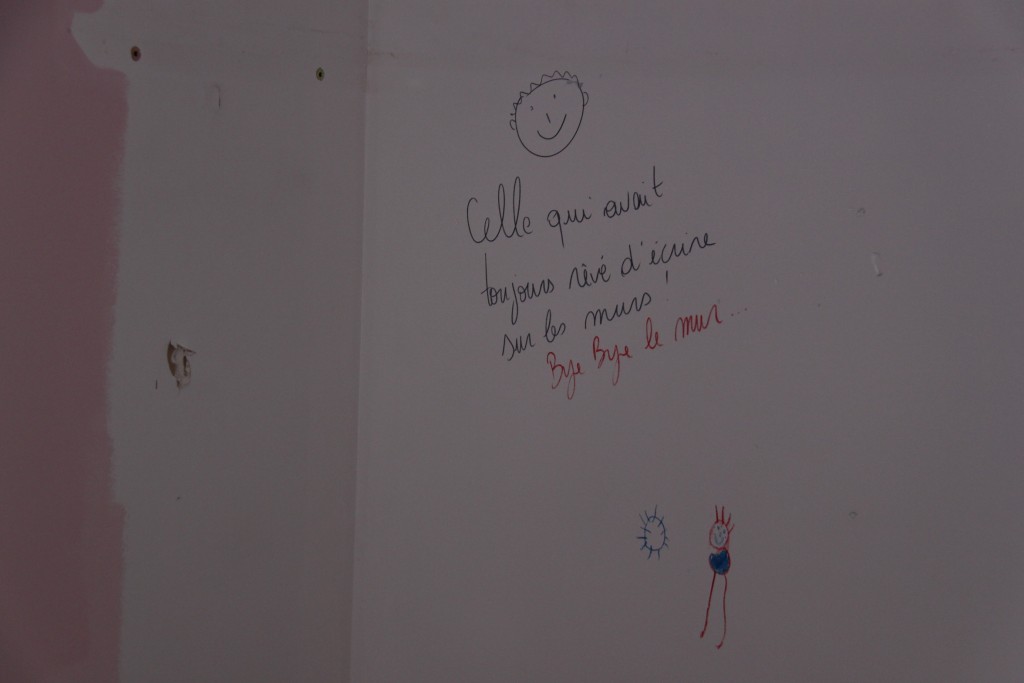 Celle qui avait
toujours rêvé d'écrire
sur les murs !
Bye Bye le mur...